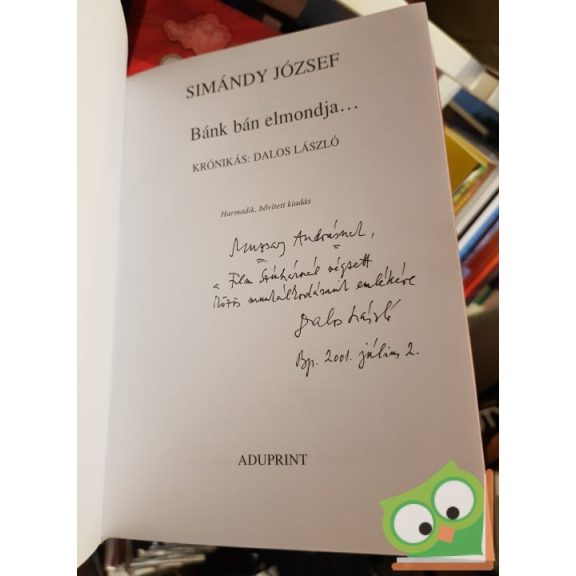 SIMÁNDY JÓZSEF
Bánk bán elmondja...
KRÓNIKÁS: DALOS LÁSZLÓ
Harmadik, bővített kiadás
Andrásnak,
a Film Színháznál végzett
közös munkálkodásunk emlékére
Dalos László
Bp. 2001. július 2.
ADUPRINT